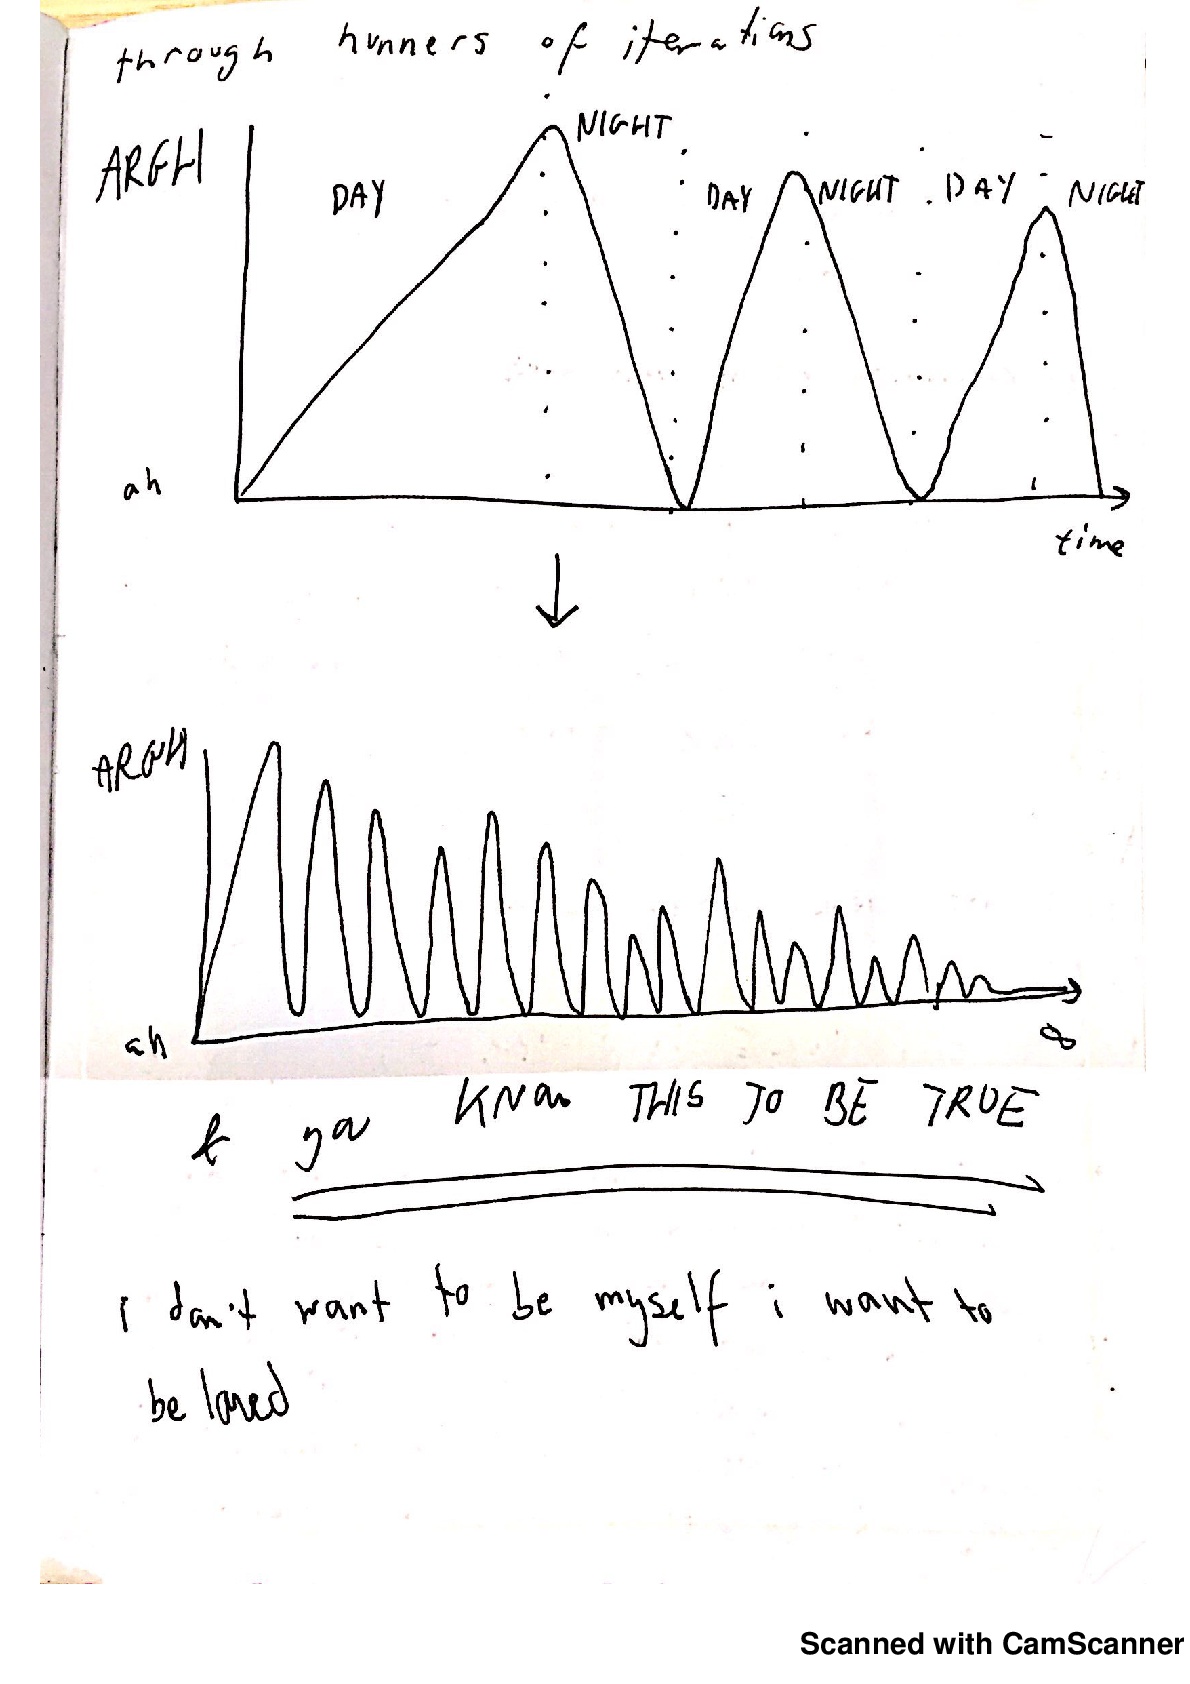 through hunners of iterations
ARGH
DAY NIGHT DAY NIGHT DAY NIGHT
ah
time
ARGH
ah
∞
& you KNOW THIS TO BE TRUE
i don't want to be myself i want to
be loved
Scanned with CamScanner